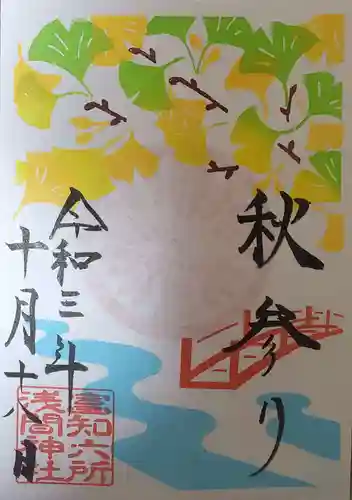 秋参り
令和三年
十月十八日
富知六所
浅間神社